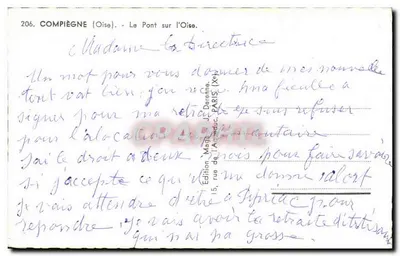 206. COMPIÈGNE (Oise). - Le Pont sur l'Oise.
Madame la Directrice
Un mot pour vous donner de mes nouvelles
tout vat bien j'en recu ma feuille a
signer pour ma retraite je suis refuser
pour l'alocation
jai le droit a deux mois pour faire savoire
si j'accepte ce qu'il me donne alors
je vais attendre d'etre a pour
repondre je vais avoir la retraite
qui nai pa grosse.
Edition Mage J. Duronne,
15, rue de l'Armoric, PARIS (XVe)